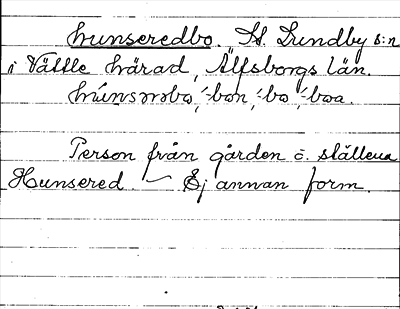 hunseredbo. St. Lundby s:n
i Vättle härad, Älfsborgs län.
Person från gården o. ställena
Hunsered. — Ej annan form.